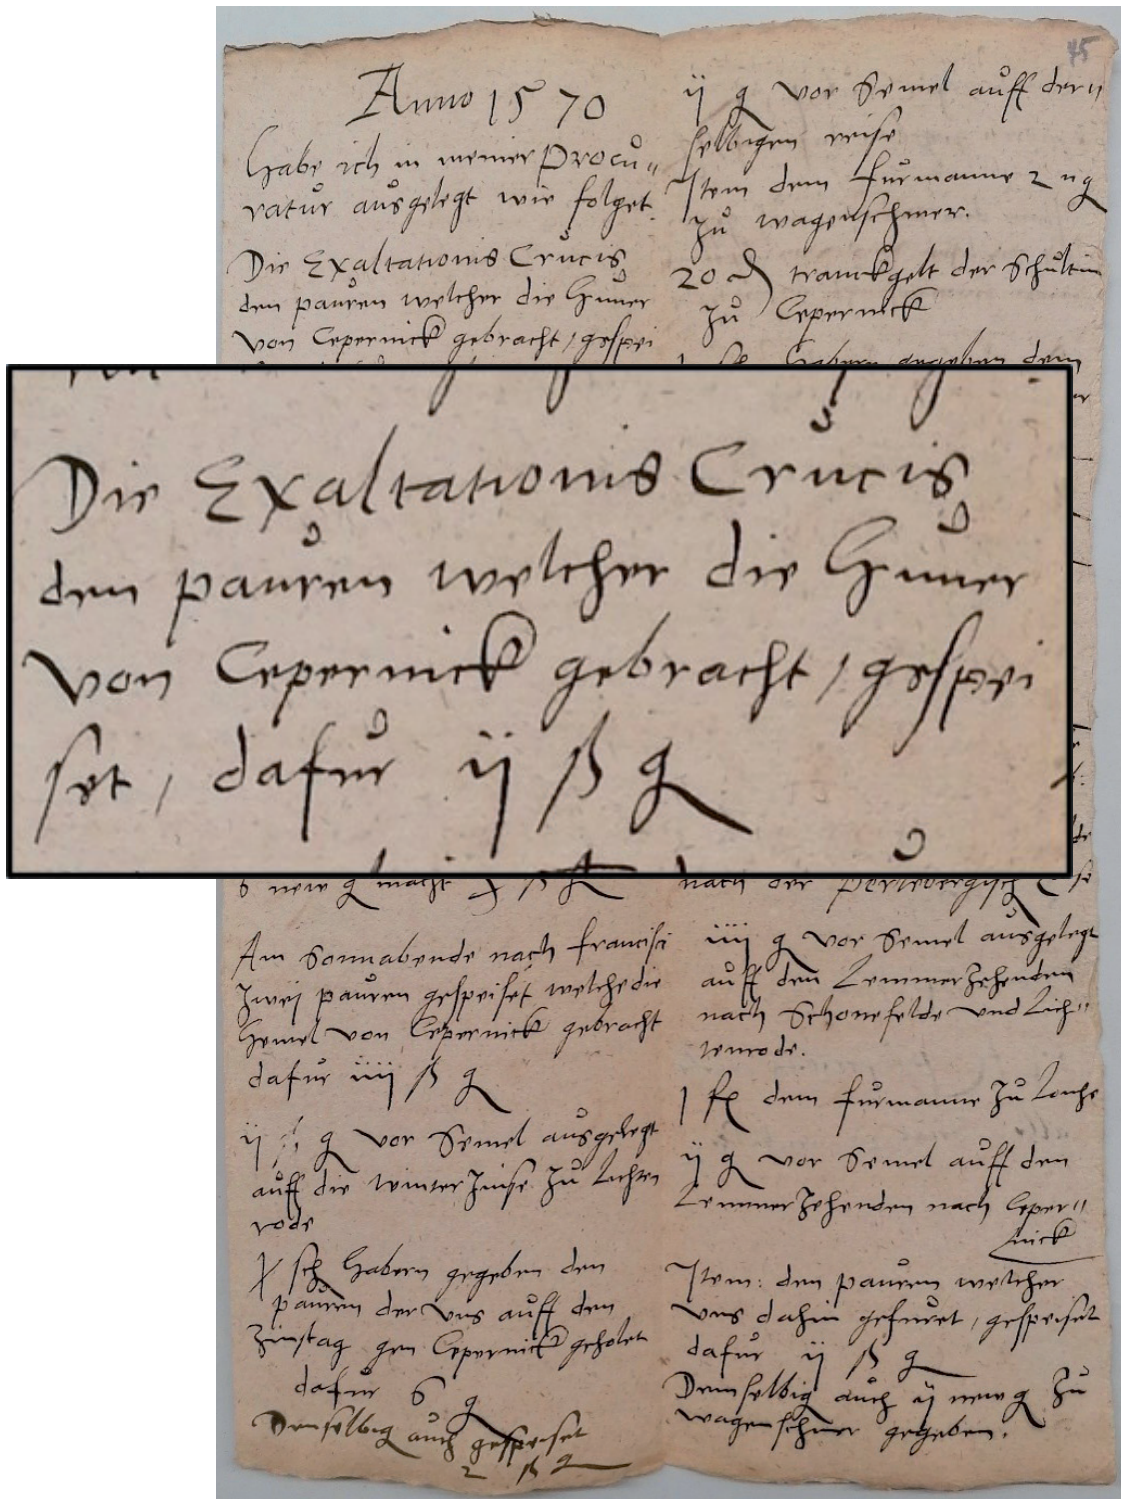 Anno 1570
Habe ich in meiner Procu„
ratur ausgelegt wie folget.
Die Exaltationis Crucis
den pauren welcher die Huner
von Cepernick gebracht / gespei
Die Exaltationis Crucis
den pauren welcher die Huner
von Cepernick gebracht / gespei
set, dafur ij ß g
6 new g macht
Am Sonnabende nach francisci
zweij pauren gespeiset welche die
Hemel von Cepernick gebracht
dafur iiij ß g
ij ß g vor Semel ausgelegt
auff die winter Zinse zu Lichten
rode
sch Habern gegeben den
pauren der uns auff den
Zinstag gen Cepernick geholet
dafur 6 g
Demselbig auch gespeiset
2 ß g
45
ij g vor Semel auff der„
selbigen reise
Item dem furmanne 2 n g
zu wagenschmer.
20 d tranckgelt der Schultin
zu Cepernick
Habern gegeben dem
nach der
iiij g vor Semel ausgelegt
auff den Lemmer Zehenden
nach Schonefelde und Lich„
tenrode.
j fl dem furmanne zu
ij g vor Semel auff den
Lemmer Zehenden nach Ceper„
nick
Item: den pauren welcher
uns dahin gefuret, gespeiset
dafur ij ß g
Demselbig auch ij new g zu
wagenschmer gegeben.